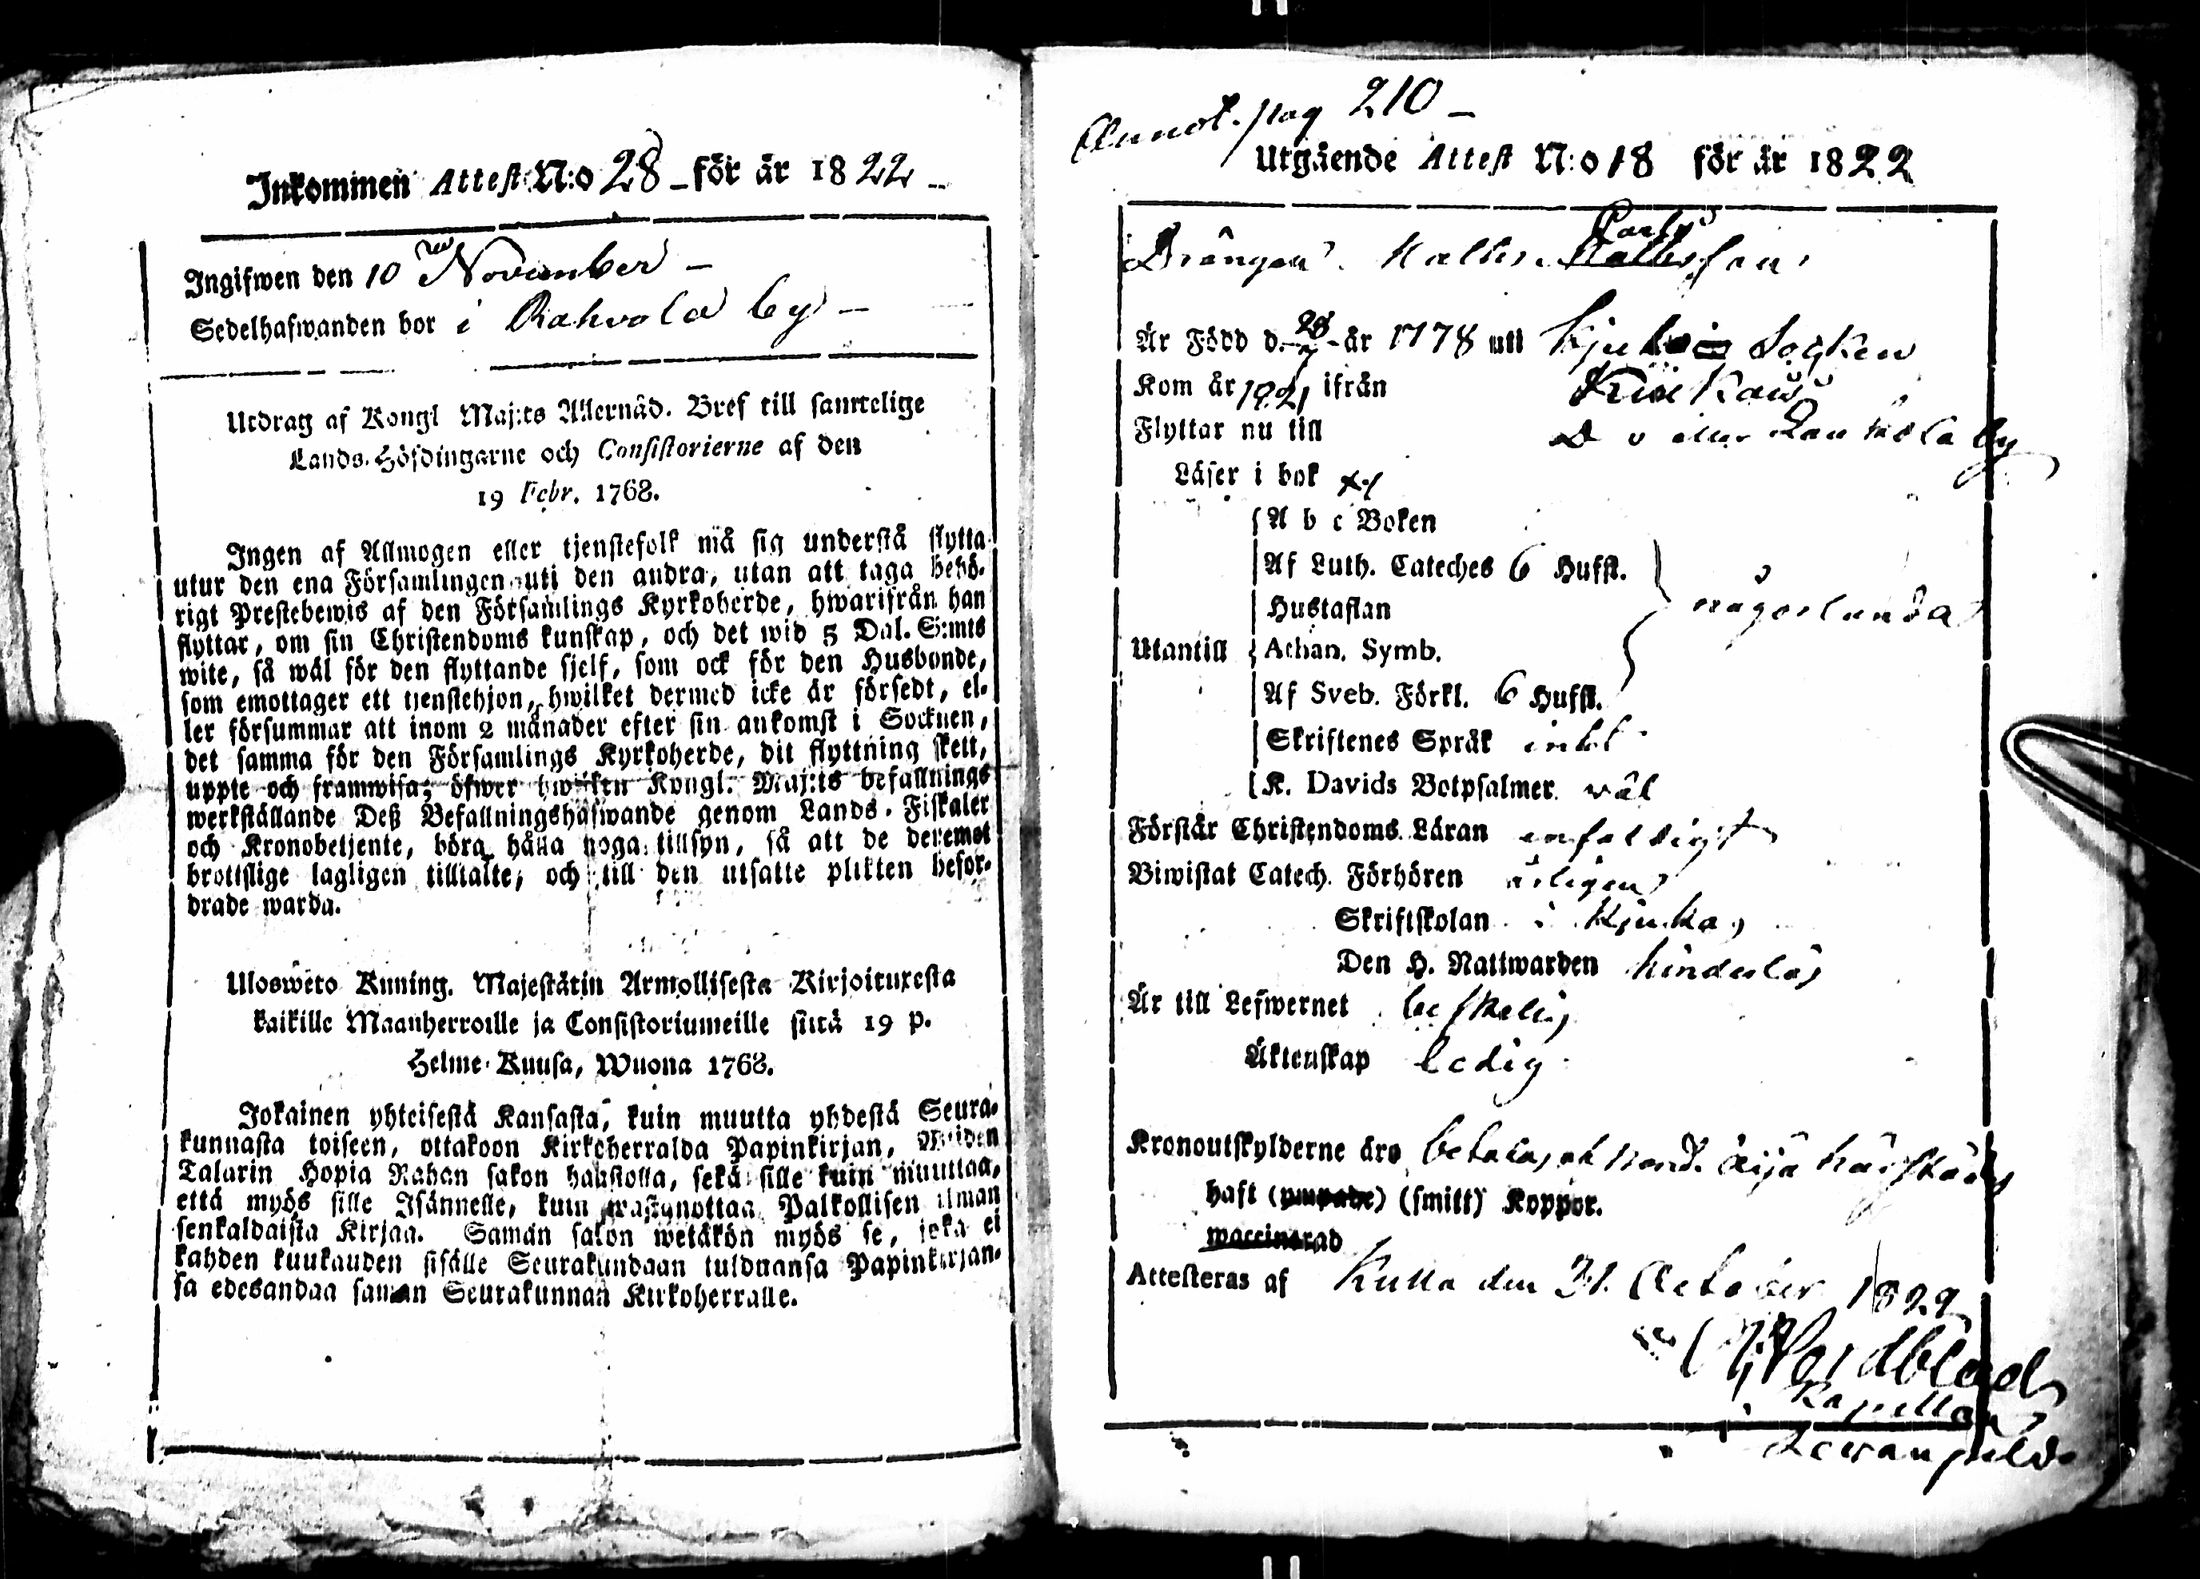 Inkommen Attest N:o 28 - för år 1822 -
Ingifwen den 10 November -
Sedelhafwanden bor i Rahvola by -
Utdrag af Kongl Maj:ts Allernåd. Bref till samtelige
Lands-Höfdingarne och Consistorierne af den
19 Febr. 1768.
Ingen af Allmogen eller tjenstefolk må sig understå flytta
utur den ena Församlingen uti den andra, utan att taga behö-
rigt Prestebewis af den Församlings Kyrkoherde, hwarifrån han
flyttar, om sin Christendoms kunskap, och det wid 5 Dal. S:mts
wite, så wäl för den flyttande sjelf, som ock för den Husbonde,
som emottager ett tjenstehjon, hwilket dermed icke är försedt, el-
ler försummar att inom 2 månader efter sin ankomst i Socknen,
det samma för den Församlings Kyrkoherde, dit flyttning skett,
uppte och framwisa; öfwer hwilken Kongl. Maj:ts befallnings
werkställande Deß Befallningshafwande genom Lands-Fiskaler
och Kronobetjente, böra hålla noga tillsyn, så att de deremot
brottslige lagligen tilltalte, och till den utsatte plikten befor-
drade warda.
Uloswето Kuning. Majestätin Armollisesta Kirjoituxesta
kaikille Maanherroille ja Consistoriumeille siitä 19 p.
Helme-Kuusa, Wuona 1768.
Jokainen yhteisestä Kansasta, kuin muutta yhdestä Seura-
kunnasta toiseen, ottakoon Kirkoherralda Papinkirjan, Wiiden
Talarin Hopia Rahan sakon haastolla, sekä sille kuin muuttaa,
että myös sille Isännelle, kuin wastanottaa Palkollisen ilman
senkaldaista Kirjaa. Saman sakon wetäkön myös se, joka ei
kahden kuukauden sisälle Seurakundaan tulduansa Papinkirjan-
sa edesandaa saman Seurakunnan Kirkoherralle.
Annot. pag 210 -
Utgående Attest N:o 18 för år 1822
Carls
Drängen Matts Mattsson
Är Född d. 28/7 år 1778 uti Socken
Kom år 1821 ifrån
Flyttar nu till by
Läser i bok
A b c Boken
Af Luth. Cateches 6 Hufst.
Hustaflan någorlunda
Utantill Athan. Symb.
Af Sveb. Förkl. 6 Hufst.
Skriftenes Språk intet
K. Davids Botpsalmer wäl
Förstår Christendoms Läran enfaldigt
Biwistat Catech. Förhören årligen
Skriftskolan i
Den H. Nattwarden hinderlös
Är till Lefwernet beskelig
Äktenskap ledig
Kronoutskylderne äro betalas
haft (ympade) (smitt) Koppor.
waccinerad
Attesteras af Kulla den 31. October 1822
Nordblad
Kapellan